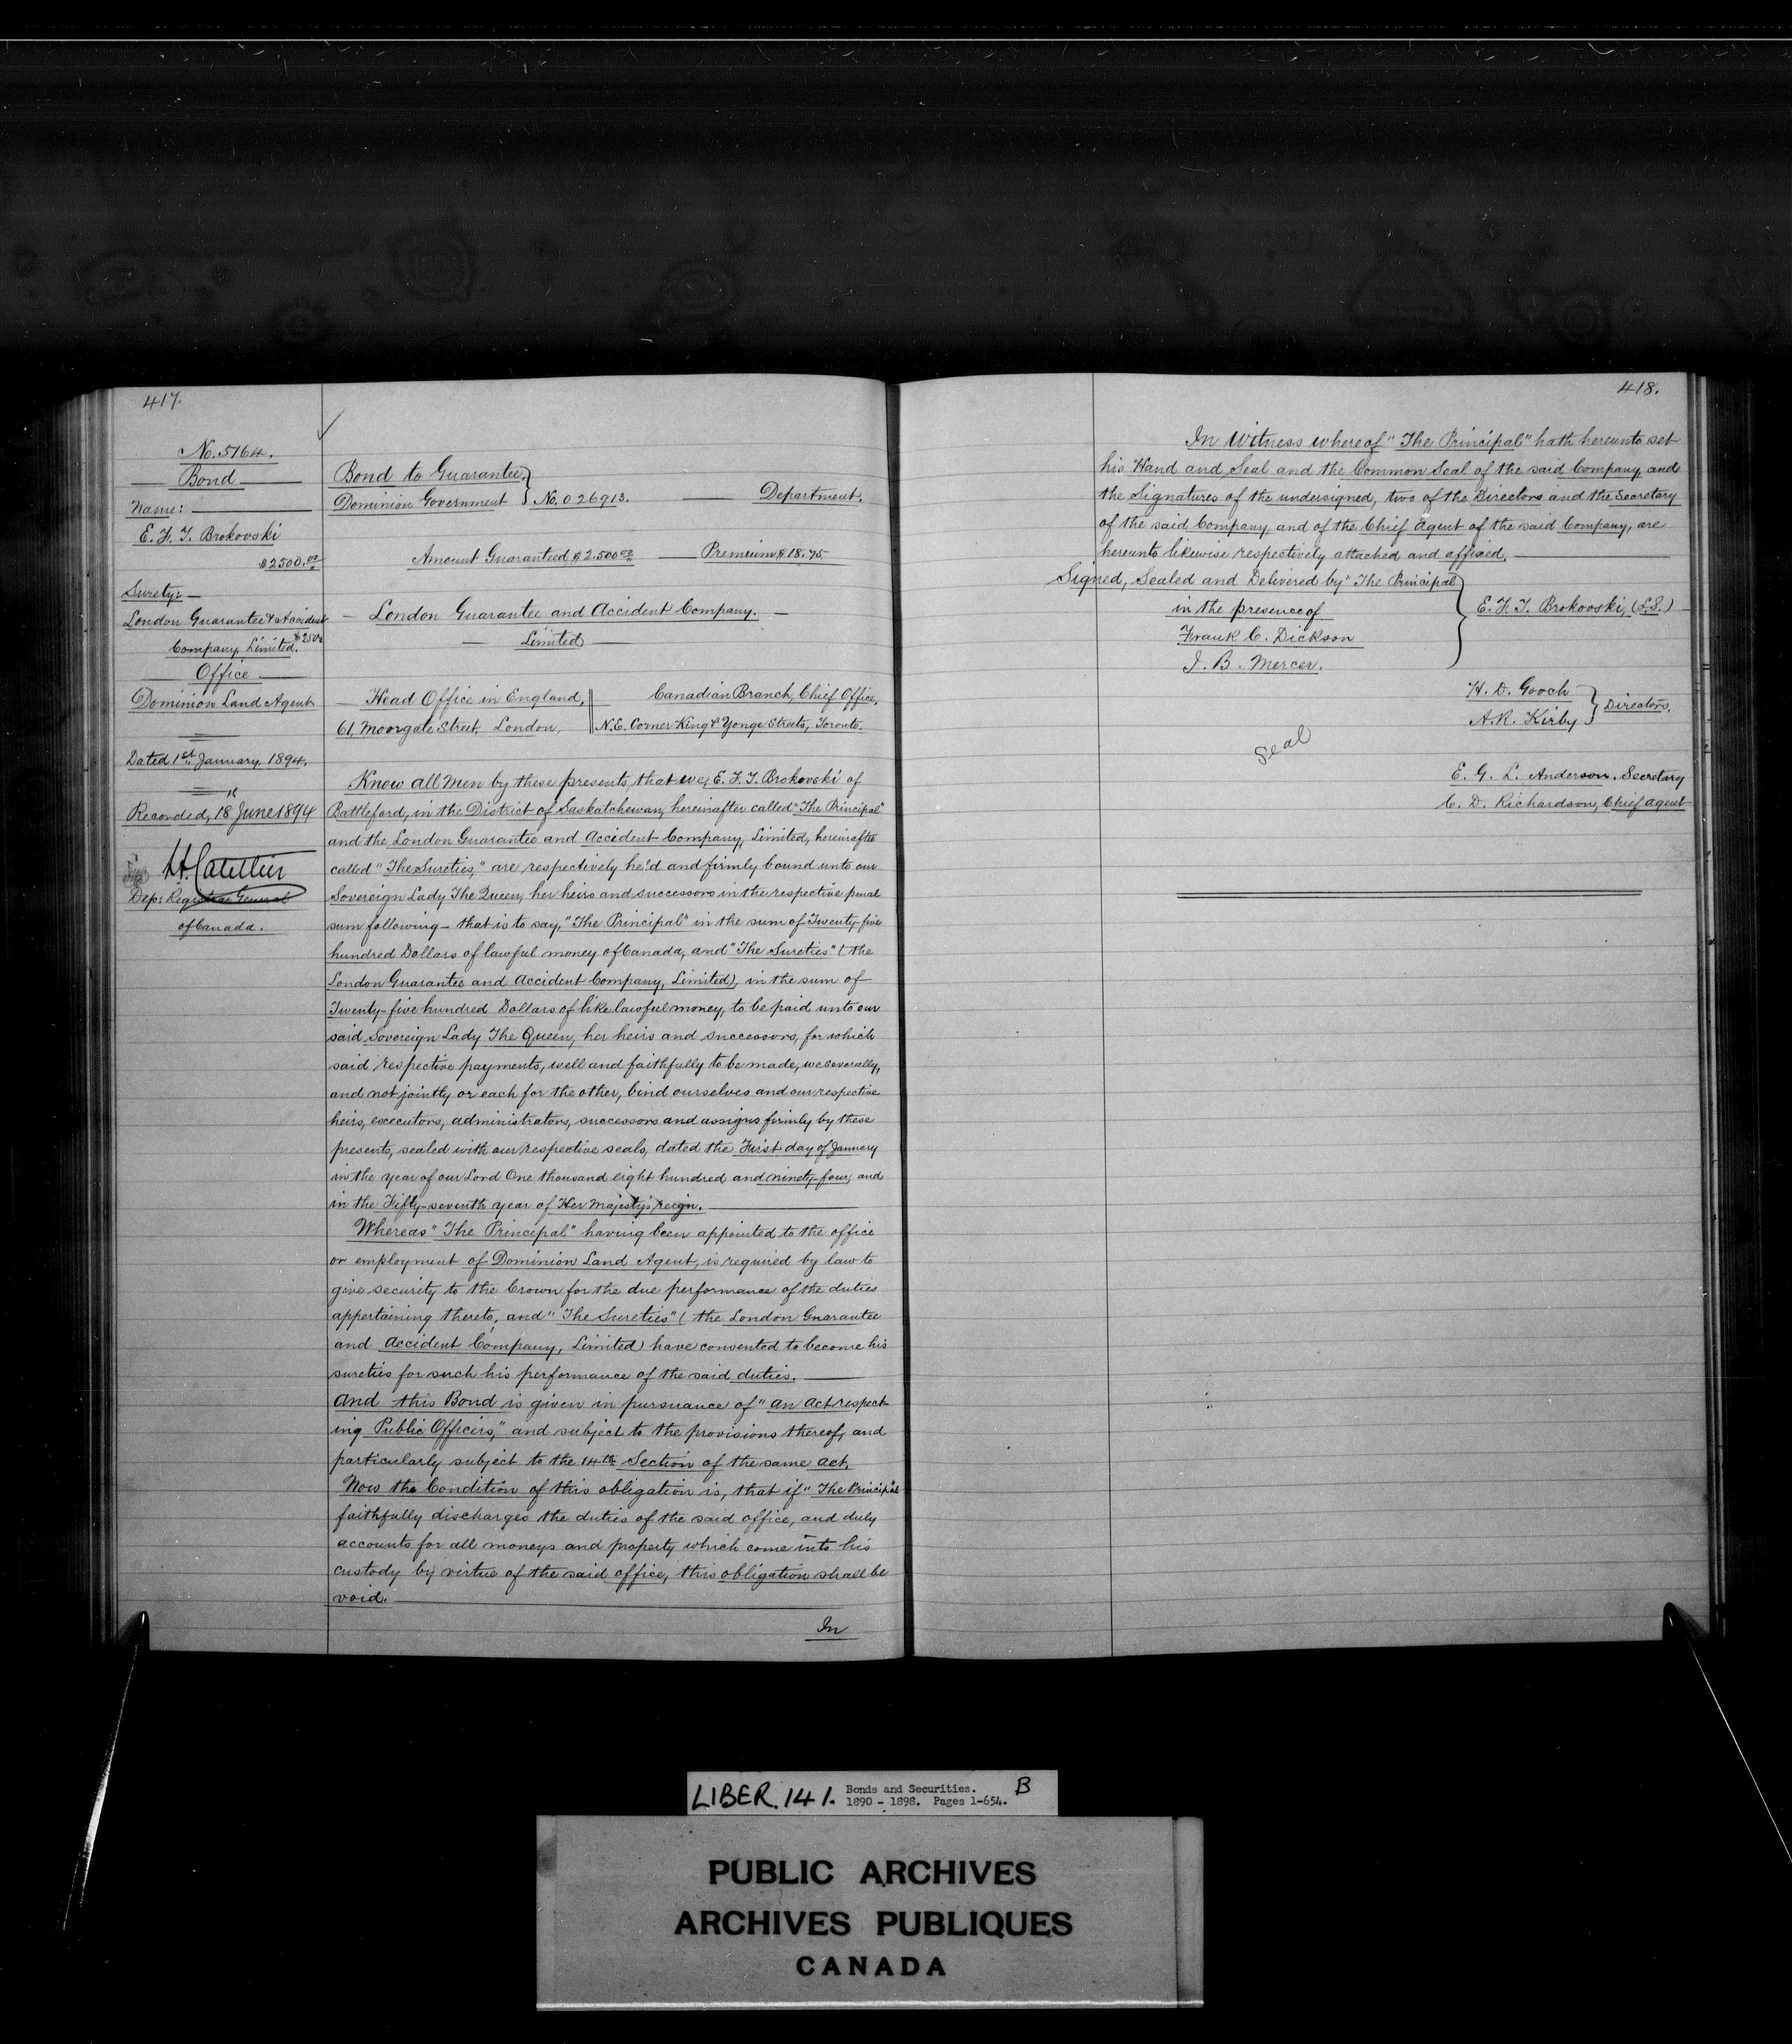 417.
No. 5764.
Bond
Name:
E. F. T. Brokovski
$2500.00
Surety:
London Guarantee & Accident
Company, Limited. $2500
Office
Dominion Land Agent
Dated 1st January 1894.
"
Recorded, 18 June 1894
Dep: Registrar General
of Canada.
Bond to Guarantee
Dominion Government } No. 026913. Department.
Amount Guaranteed $2.500 00 Premium $18.75
London Guarantee and Accident Company.
Limited
Head Office in England, Canadian Branch, Chief Office,
61, Moorgate Street, London, N.E. Corner King & Yonge Streets, Toronto.
Know all Men by these presents, that we, E. F. T. Brokovski of
Battleford, in the District of Saskatchewan, hereinafter called "The Principal"
and the London Guarantee and Accident Company, Limited, hereinafter
called "The Sureties," are respectively held and firmly bound unto our
Sovereign Lady The Queen, her heirs and successors in the respective penal
sum following – that is to say, "The Principal" in the sum of Twenty-five
hundred Dollars of lawful money of Canada, and "The Sureties" (the
London Guarantee and Accident Company, Limited), in the sum of
Twenty-five hundred Dollars of like lawful money, to be paid unto our
said Sovereign Lady The Queen, her heirs and successors, for which
said respective payments, well and faithfully to be made, we severally,
and not jointly or each for the other, bind ourselves and our respective
heirs, executors, administrators, successors and assigns firmly by these
presents, sealed with our respective seals, dated the First day of January
in the year of our Lord One thousand eight hundred and ninety-four, and
in the Fifty-seventh year of Her Majesty's reign.
Whereas "The Principal" having been appointed to the office
or employment of Dominion Land Agent, is required by law to
give security to the Crown for the due performance of the duties
appertaining thereto, and "The Sureties" (the London Guarantee
and Accident Company, Limited) have consented to become his
sureties for such his performance of the said duties.
And this Bond is given in pursuance of "An Act respect-
ing Public Officers," and subject to the provisions thereof, and
particularly subject to the 14th Section of the same Act.
Now the Condition of this obligation is, that if "The Principal"
faithfully discharges the duties of the said office, and duly
accounts for all moneys and property which come into his
custody by virtue of the said office, this obligation shall be
void.
In
418.
In Witness whereof "The Principal" hath hereunto set
his Hand and Seal and the Common Seal of the said Company and
the Signatures of the undersigned, two of the Directors and the Secretary
of the said Company, and of the Chief Agent of the said Company, are
hereunto likewise respectively attached and affixed.
Signed, Sealed and Delivered by "The Principal
in the presence of
Frank C. Dickson
J. B. Mercer.
E. F. T. Brokovski, (L.S.)
H. D. Gooch
A. R. Kirby } Directors.
Seal
E. G. L. Anderson, Secretary
C. D. Richardson, Chief Agent
LIBER. 141. Bonds and Securities. B
1890 - 1898. Pages 1-654.
PUBLIC ARCHIVES
ARCHIVES PUBLIQUES
CANADA